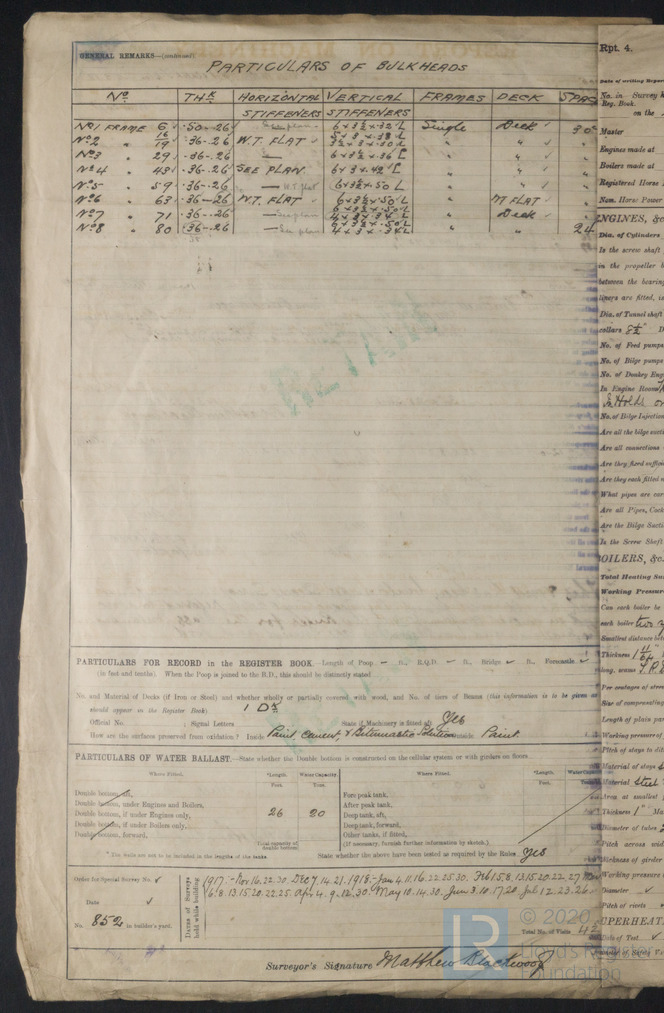 GENERAL REMARKS—(continued)
PARTICULARS OF BULKHEADS
No THK HORIZONTAL VERTICAL FRAMES DECK
STIFFENERS STIFFENERS
No1 FRAME 6 .50-.26 6 x 3½ x .32 L Single Deck 30
No2 " 19 .36-.26 W.T. FLAT " "
No3 " 29 .36-.26 6 x 3½ x .36 L " "
No4 " 43 .36-.26 SEE PLAN 6 x 3 x .42 L " "
No5 " 59 .36-.26 6 x 3½ x .50 L " "
No6 " 63 .36-.26 W.T. FLAT 6 x 3½ x .50 L " M FLAT
No7 " 71 .36-.26 See plan " Deck
No8 " 80 .36-.26 See plan 4 x 3 x .34 L " " 24
PARTICULARS FOR RECORD in the REGISTER BOOK.—Length of Poop — ft., R.Q.D. — ft., Bridge ft., Forecastle
(in feet and tenths). When the Poop is joined to the B.D., this should be distinctly stated
No. and Material of Decks (if Iron or Steel) and whether wholly or partially covered with wood, and No. of tiers of Beams (this information is to be given as
should appear in the Register Book) 1 Dk
Official No. Signal Letters State if Machinery is fitted aft Yes
How are the surfaces preserved from oxidation? Inside Paint, cement, & Bitumastic Solution Outside Paint
PARTICULARS OF WATER BALLAST.—State whether the Double bottom is constructed on the cellular system or with girders on floors
Where Fitted. *Length. Water Capacity Where Fitted. *Length. Water Capacity
Feet. Tons. Feet.
Double bottom, aft, Fore peak tank,
Double bottom, under Engines and Boilers, After peak tank,
Double bottom, if under Engines only, 26 20 Deep tank, aft,
Double bottom, if under Boilers only, Deep tank, forward,
Double bottom, forward, Other tanks, if fitted,
Total capacity of double bottom (If necessary, furnish further information by sketch.)
* The wells are not to be included in the lengths of the tanks. State whether the above have been tested as required by the Rules Yes
Order for Special Survey No.
Date
No. 852 in builder's yard.
Dates of Surveys held while building
1917:- Nov 16.22.30. Dec 7.14.21. 1918:- Jan 4.11.16.22.25.30. Feb 1.5.8.13.15.20.22.27
6.8.13.15.20.22.25. Apr 4.9.12.30. May 10.14.30. Jun 3.10.17.20 Jul 12.23.26
Total No. of Visits 42
Surveyor's Signature Matthew Blackwood
© 2020
Lloyd's Register
Foundation
Rpt. 4.
No. in Survey
Reg. Book.
on the
Master
Engines made at
Boilers made at
Registered Horse
Nom. Horse Power
ENGINES, &c
Dia. of Cylinders
Is the screw shaft
in the propeller
between the bearing
liners are fitted, is
Dia. of Tunnel shaft
collars 8½"
No. of Feed pumps
No. of Bilge pumps
No. of Donkey Eng
In Engine Room
In Holds
No. of Bilge Injection
Are all the bilge suct
Are all connections
Are they fixed suffic
Are they each fitted
What pipes are car
Are all Pipes, Cock
Are the Bilge Suct
Is the Screw Shaft
BOILERS, &c.
Total Heating Su
Working Pressure
Can each boiler be
each boiler two
Smallest distance bet
Thickness
long. seams T.R.
Per centages of stren
Size of compensating
Length of plain par
Working pressure of
Pitch of stays to dit
Material of stays
Material steel
Area at smallest
Thickness 1"
Diameter of tubes
Pitch across wid
thickness of girder
Working pressure
Diameter
Pitch of rivets
SUPERHEAT
Date of Test